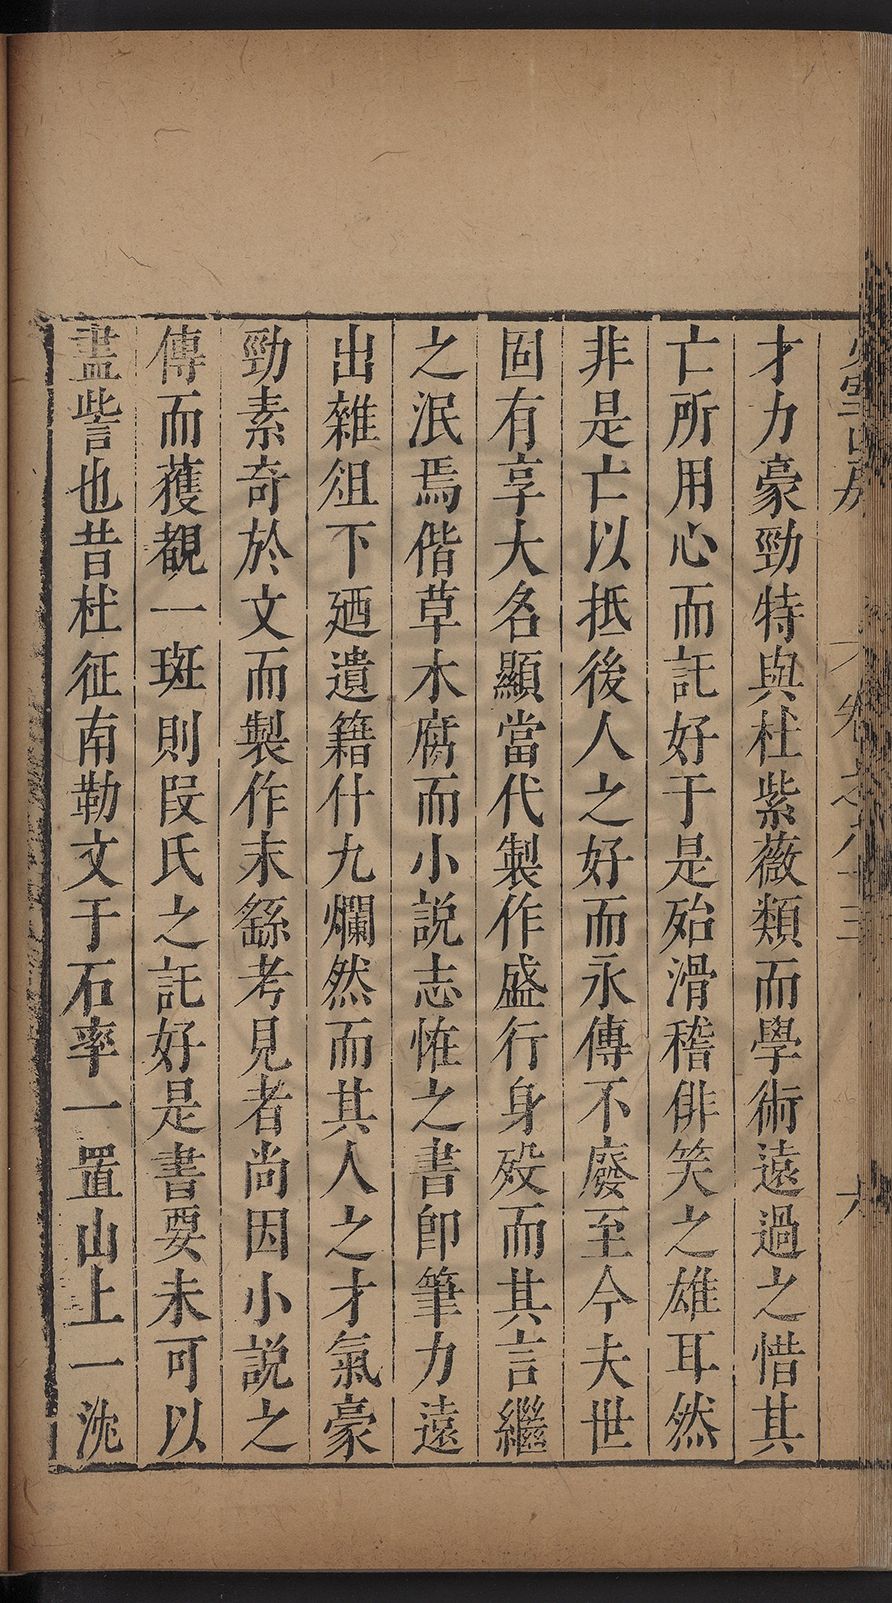 少室山房 卷之八十三 六
才力豪勁特與杜紫薇類而學術遠過之惜其
亡所用心而託好于是殆滑稽俳笑之雄耳然
非是亡以抵後人之好而永傳不廢至今夫世
固有享大名顯當代製作盛行身歿而其言繼
之泯焉偕草木腐而小説志恠之書卽筆力遠
出雜俎下廼遺籍什九爛然而其人之才氣豪
勁素奇於文而製作末繇考見者尚因小説之
傳而獲覩一斑則叚氏之託好是書要未可以
盡訾也昔杜征南勒文于石率一置山上一沈